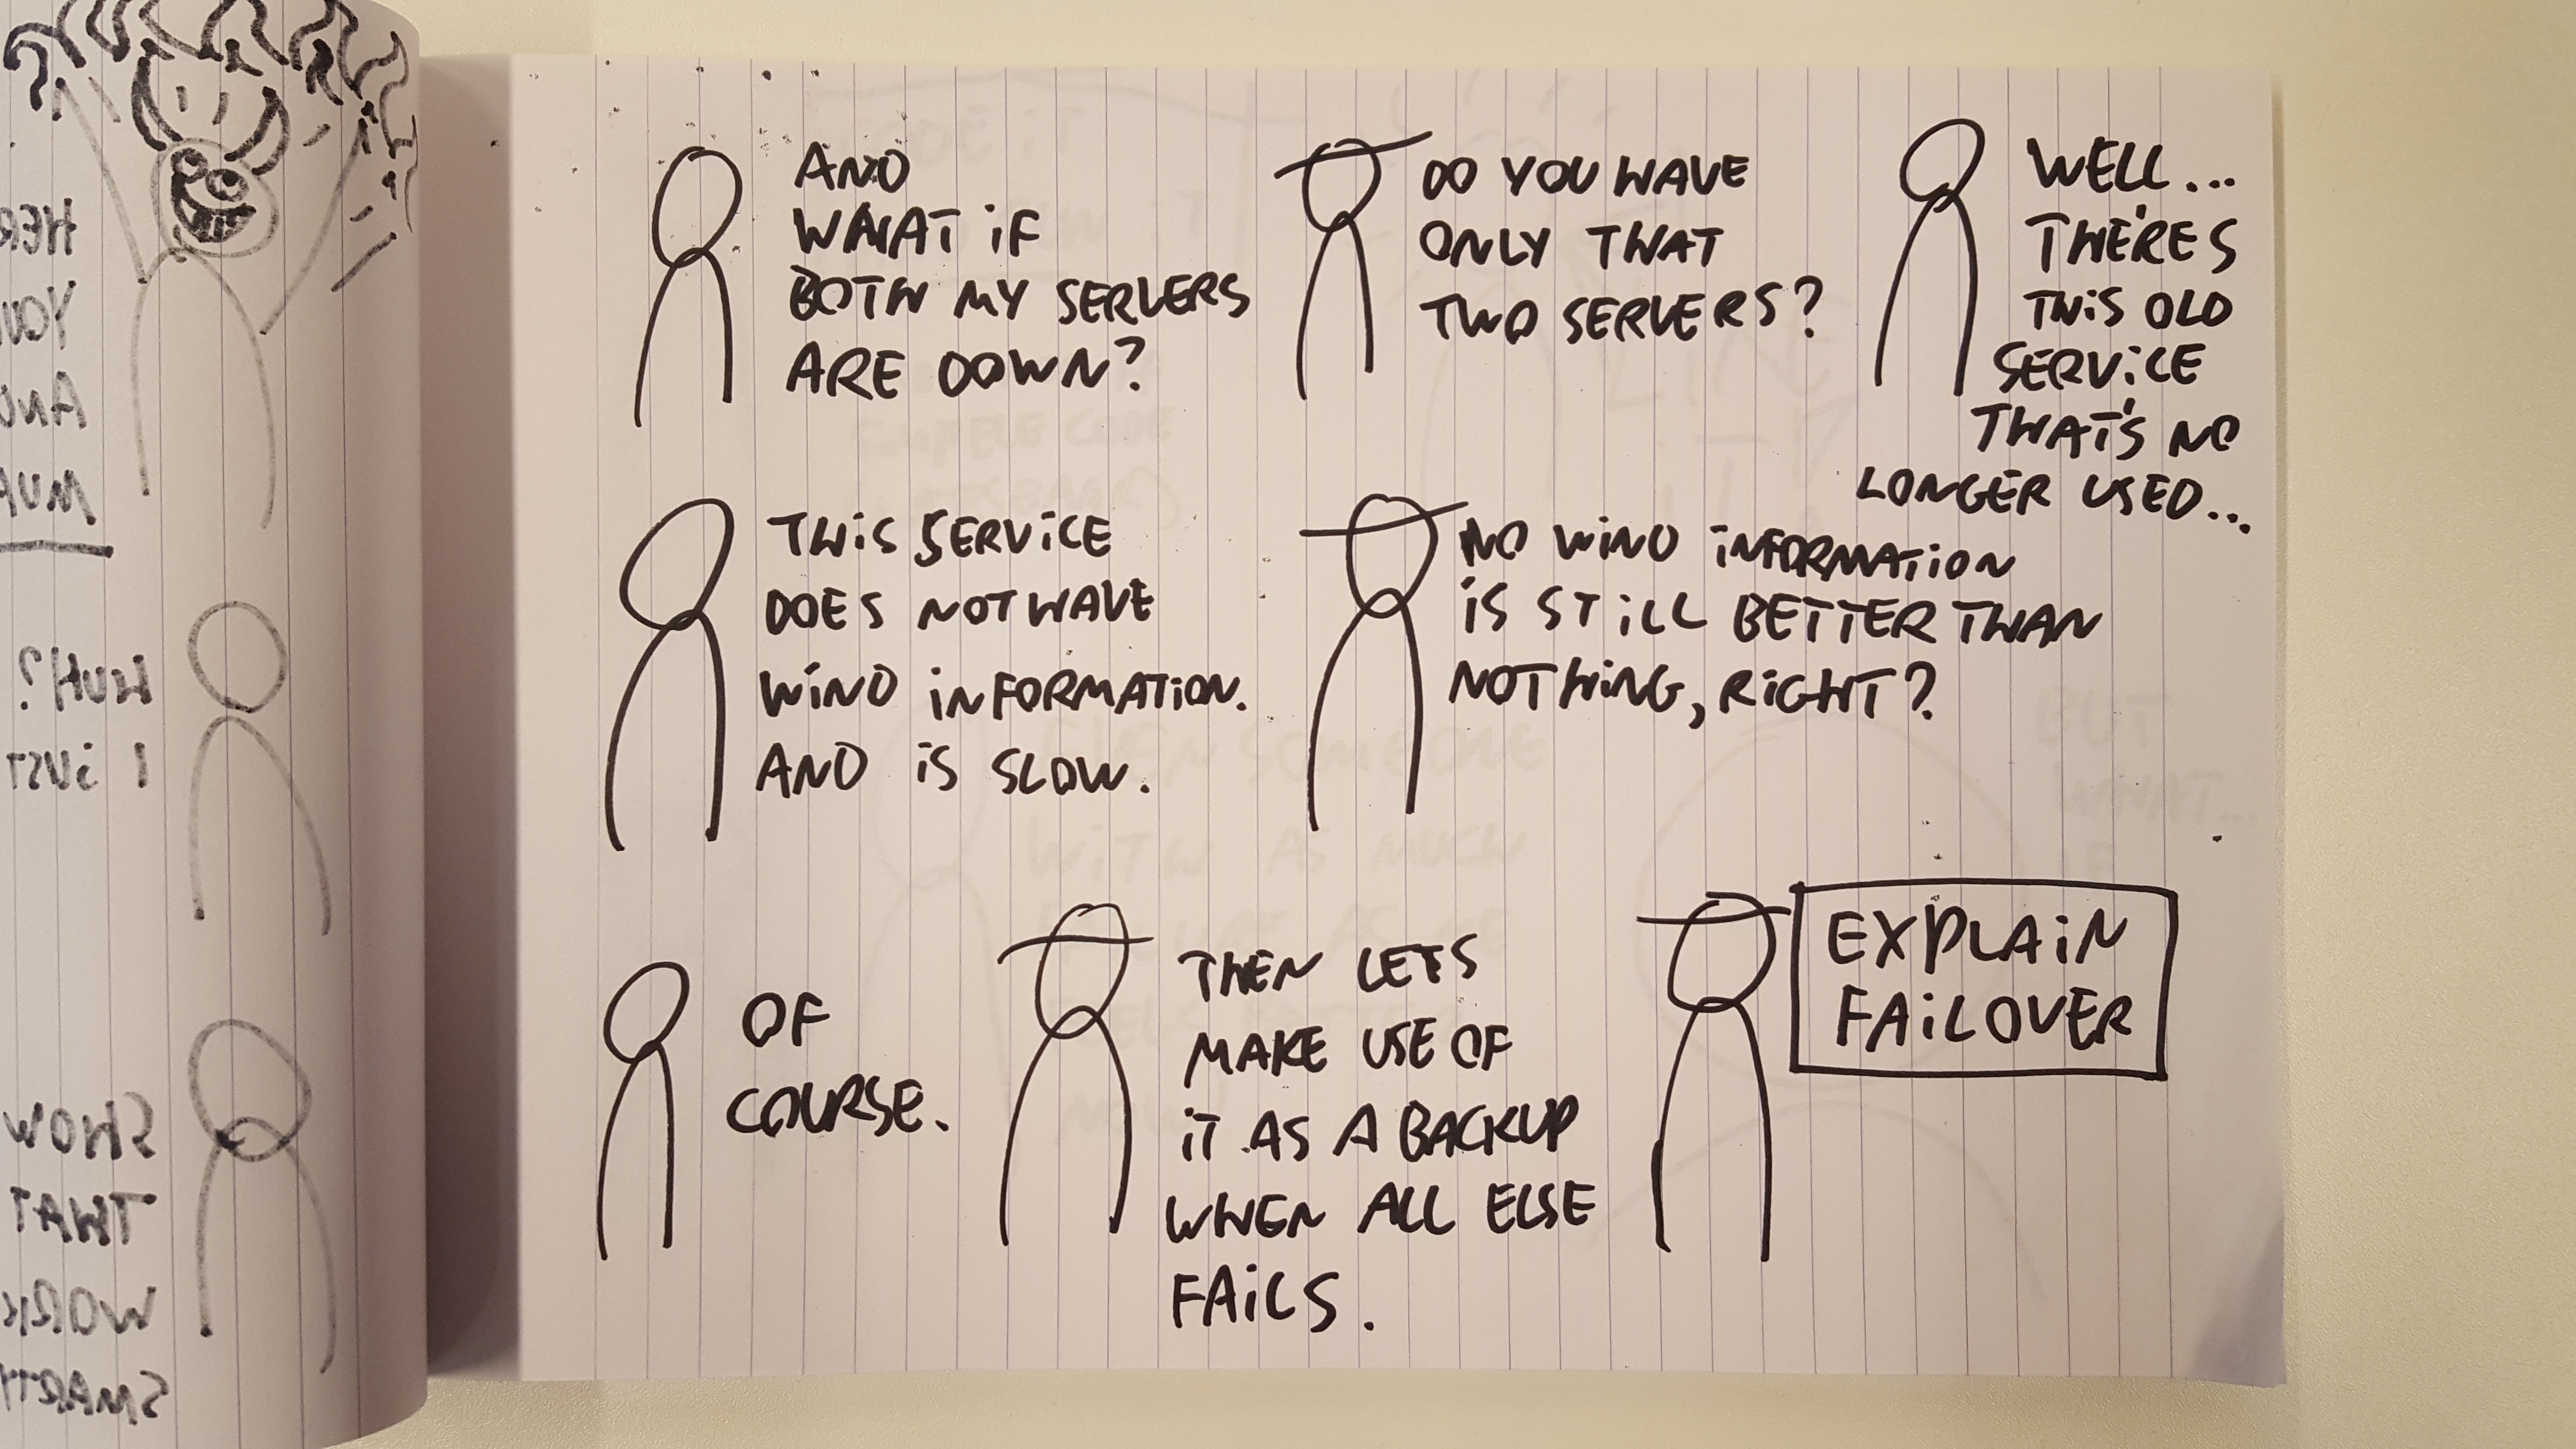 AND
WHAT IF
BOTH MY SERVERS
ARE DOWN?
DO YOU HAVE
ONLY THAT
TWO SERVERS?
WELL...
THERE'S
THIS OLD
SERVICE
THAT'S NO
LONGER USED...
THIS SERVICE
DOES NOT HAVE
WIND INFORMATION.
AND IS SLOW.
NO WIND INFORMATION
IS STILL BETTER THAN
NOTHING, RIGHT?
OF
COURSE.
THEN LET'S
MAKE USE OF
IT AS A BACKUP
WHEN ALL ELSE
FAILS.
EXPLAIN
FAILOVER